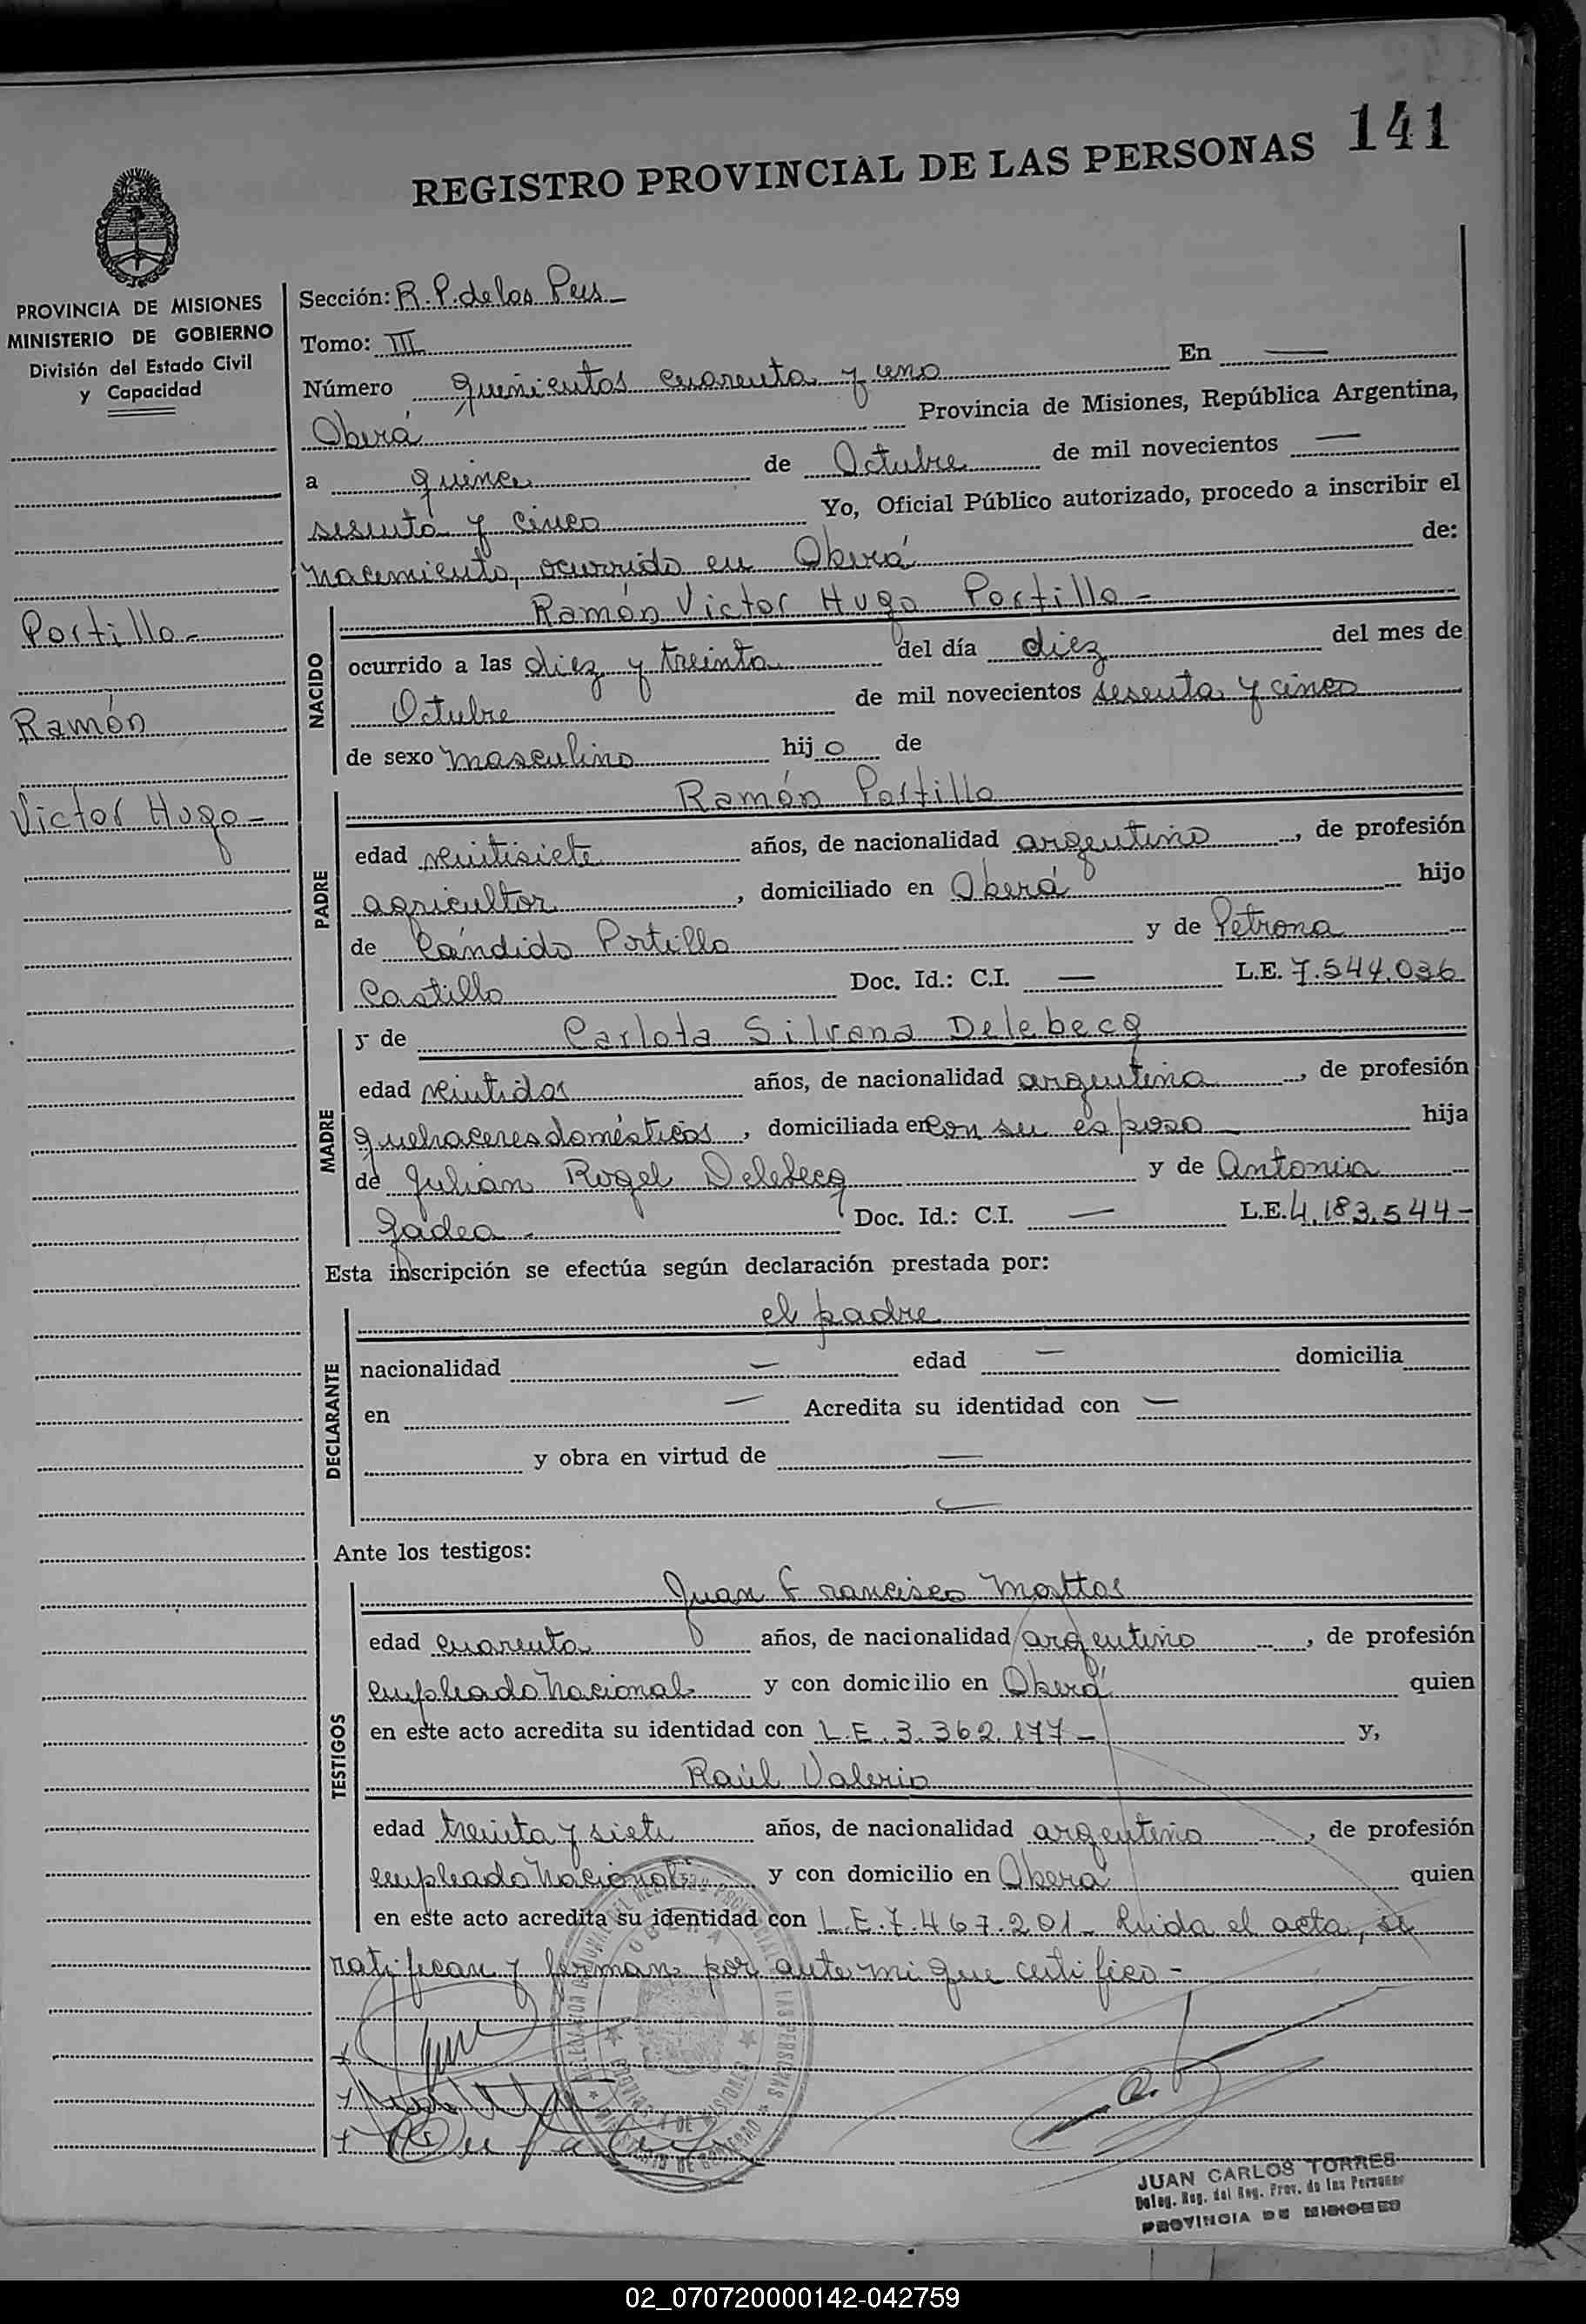 141
REGISTRO PROVINCIAL DE LAS PERSONAS
PROVINCIA DE MISIONES
MINISTERIO DE GOBIERNO
División del Estado Civil
y Capacidad
Portillo -
Ramón
Victor Hugo -
Sección: R. P. de las Pers -
Tomo: III
Número quinientos cuarenta y uno En —
Oberá Provincia de Misiones, República Argentina,
a quince de Octubre de mil novecientos —
sesenta y cinco Yo, Oficial Público autorizado, procedo a inscribir el
nacimiento, ocurrido en Oberá de:
NACIDO
Ramón Victor Hugo Portillo -
ocurrido a las diez y treinta del día diez del mes de
Octubre de mil novecientos sesenta y cinco
de sexo masculino hijo de
PADRE
Ramón Portillo
edad veintisiete años, de nacionalidad argentino, de profesión
agricultor, domiciliado en Oberá hijo
de Cándido Portillo y de Petrona
Castillo Doc. Id.: C.I. — L.E. 7.544.036
MADRE
y de Carlota Silvana Delebecq
edad veintidos años, de nacionalidad argentina, de profesión
quehaceres domésticos, domiciliada en con su esposo — hija
de Julian Rogel Delebecq y de Antonia
Gadea - Doc. Id.: C.I. — L.E. 4.183.544 -
Esta inscripción se efectúa según declaración prestada por:
DECLARANTE
el padre
nacionalidad — edad — domicilia
en — Acredita su identidad con —
y obra en virtud de —
—
Ante los testigos:
TESTIGOS
Juan Francisco Mattos
edad cuarenta años, de nacionalidad argentino, de profesión
empleado Nacional y con domicilio en Oberá quien
en este acto acredita su identidad con L.E. 3.362.177 - y,
Raúl Valerio
edad treinta y siete años, de nacionalidad argentino, de profesión
empleado Nacional y con domicilio en Oberá quien
en este acto acredita su identidad con L.E. 7.467.201 - Leida el acta, se
ratifican y firman por ante mi que certifico -
JUAN CARLOS TORRES
Deleg. Reg. del Reg. Prov. de las Personas
PROVINCIA DE MISIONES
02_070720000142-042759